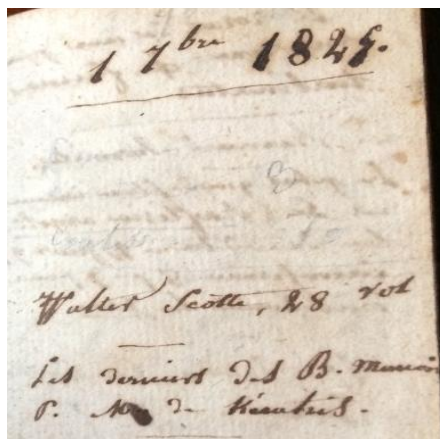 1 7bre 1825.
Walter Scotte, 28 vol
Les derniers des B. 
P. de Kératris.